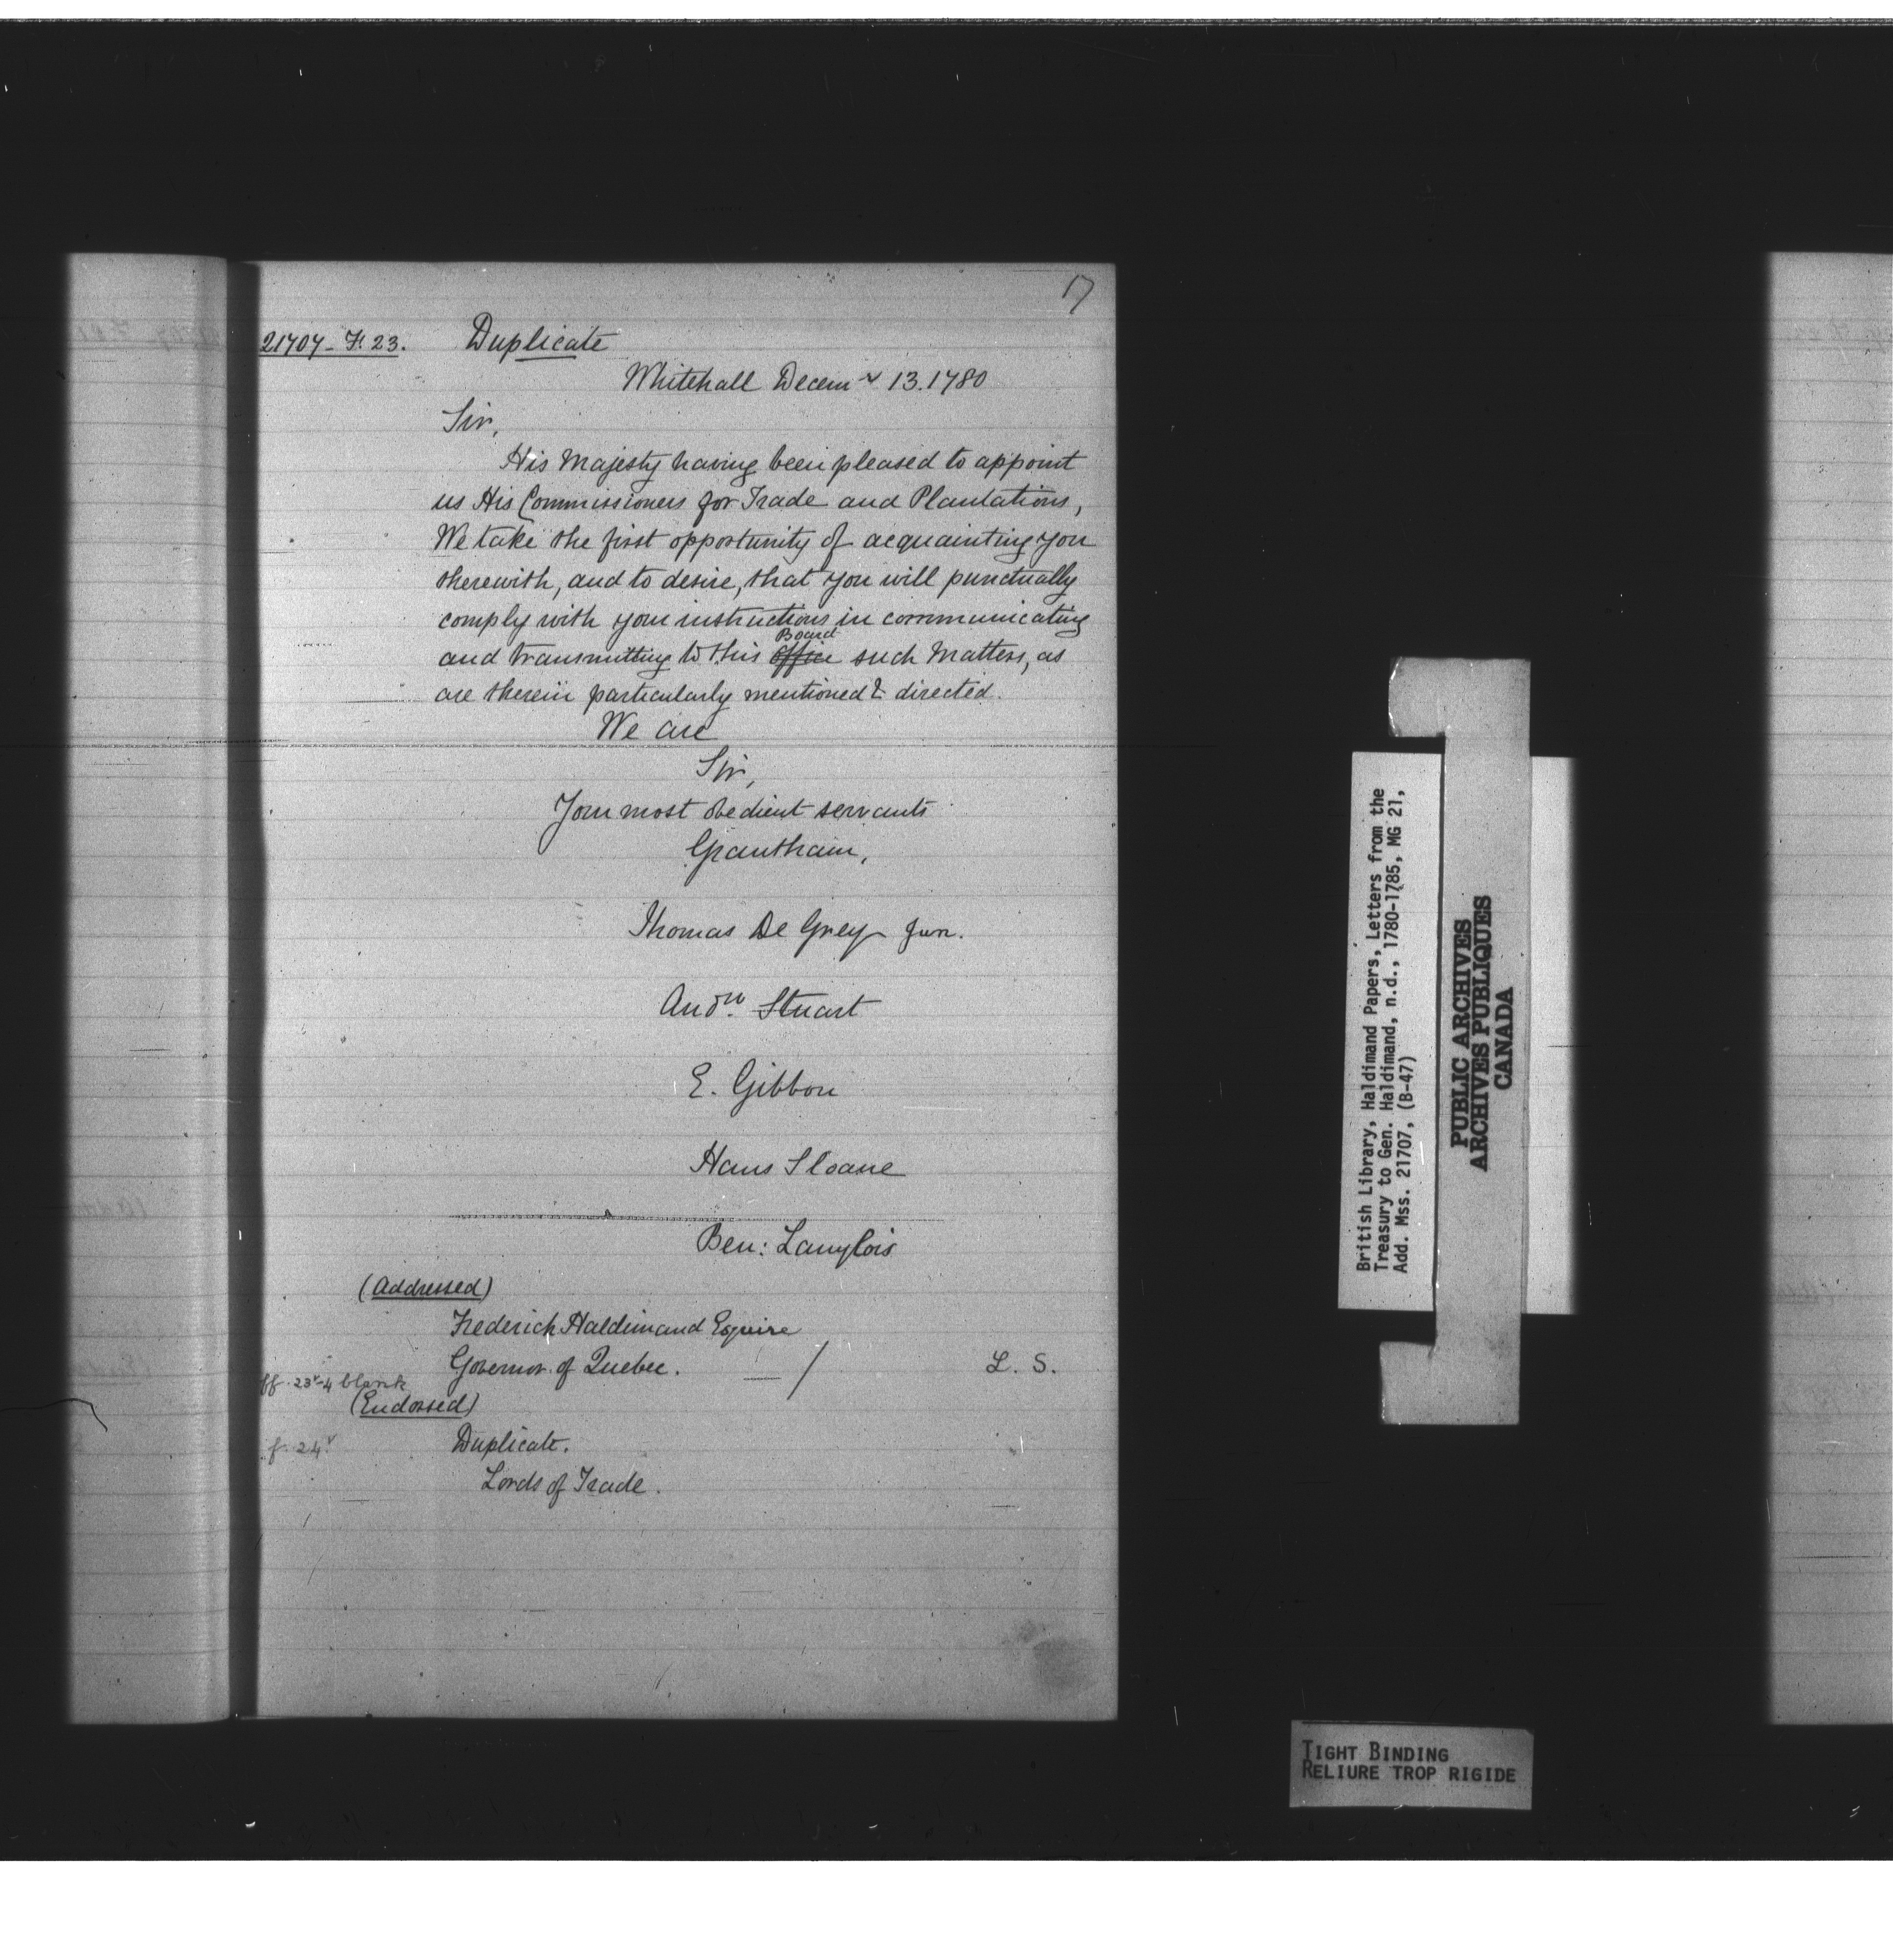 17
21707 - F. 23. Duplicate
Whitehall Decemr 13. 1780
Sir,
His Majesty having been pleased to appoint
us His Commissioners for Trade and Plantations,
We take the first opportunity of acquainting you
therewith, and to desire, that you will punctually
comply with your instructions in communicating
Board
and transmitting to this office such Matters, as
are therein particularly mentioned & directed.
We are
Sir,
Your most obedient servants
Grantham,
Thomas De Grey Jun.
Andw. Stuart
E. Gibbon
Hans Sloane
Ben: Langlois
(Addressed)
Frederick Haldimand Esquire
Governor of Quebec. L. S.
ff. 23v-4 blank
(Endossed)
f. 24v Duplicate.
Lords of Trade.
British Library, Haldimand Papers, Letters from the
Treasury to Gen. Haldimand, n.d., 1780-1785, MG 21,
Add. Mss. 21707, (B-47)
PUBLIC ARCHIVES
ARCHIVES PUBLIQUES
CANADA
TIGHT BINDING
RELIURE TROP RIGIDE